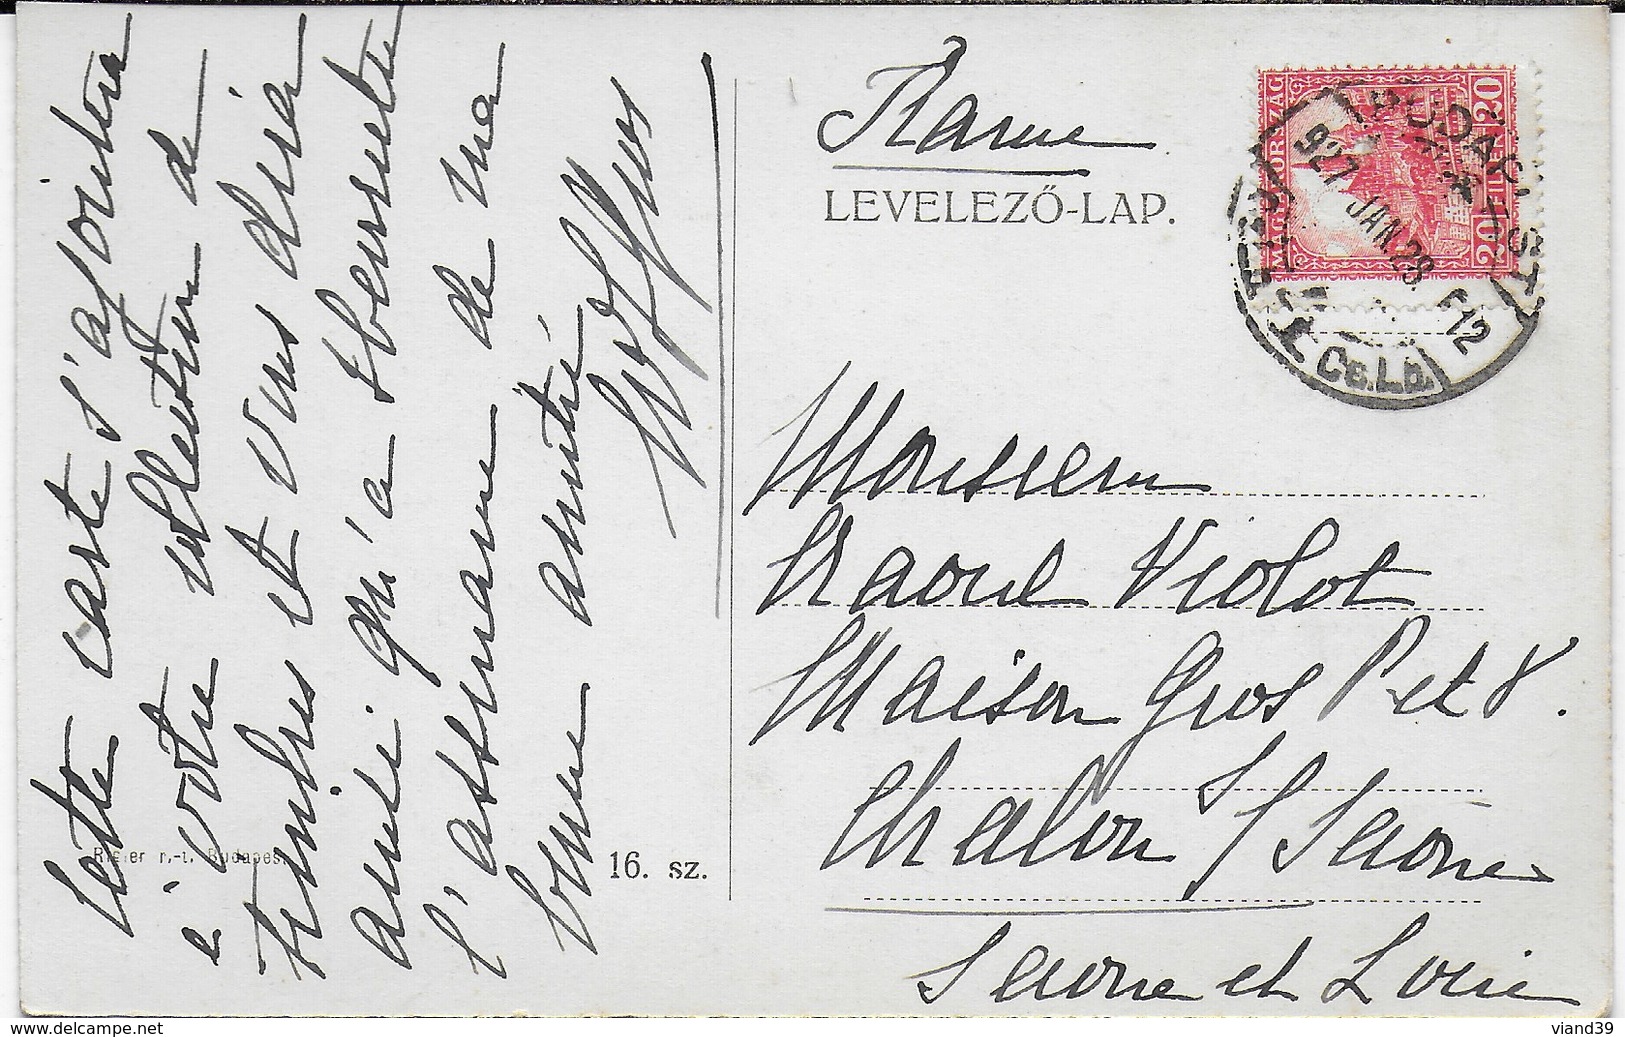 Cette carte s'ajoutera
à votre collection de
timbres et vous dira
aussi qu'à
l'assurance de ma
bonne amitié
LEVELEZŐ-LAP.
MAGYARORSZÁG
20 FILLÉR 20
BUDAPEST
927 JAN 28
12
Monsieur
Raoul Violot
Maison Gros P et V.
Chalon s/ Saone
Saone et Loire
Rigler r.-t. Budapest
16. sz.
www.delcampe.net
viand39